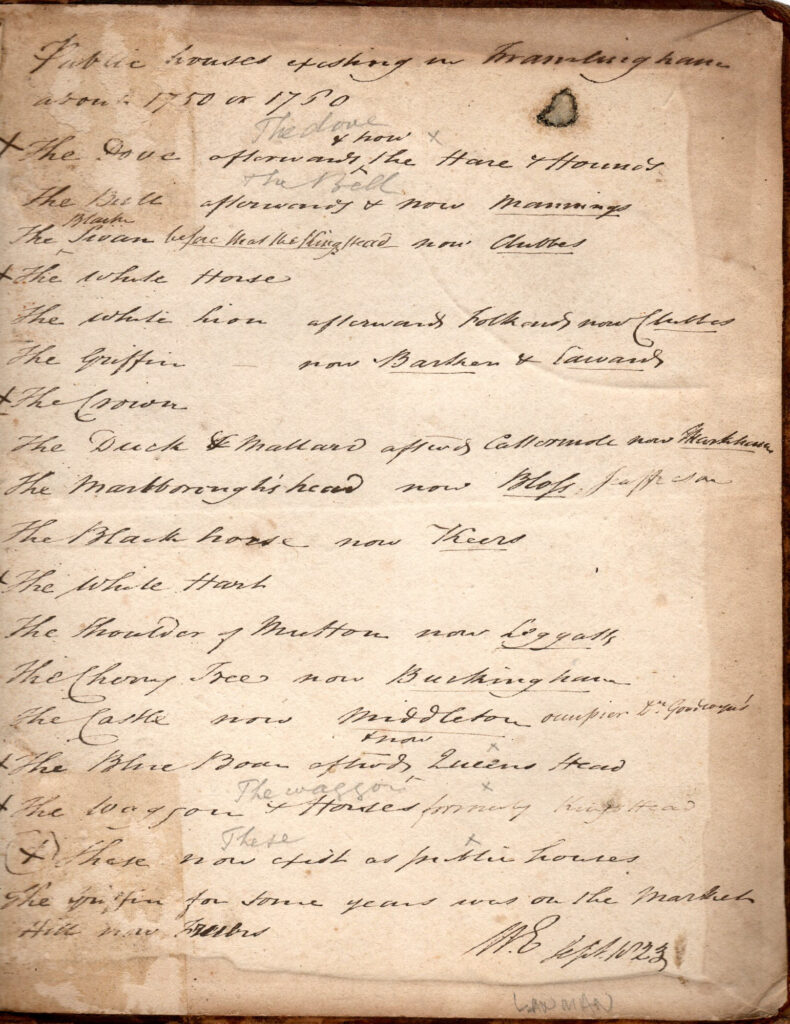 Public houses existing in Framlingham
about 1750 or 1760
The dove
& now
x The Dove afterwards the Hare & Hounds
The Bell
The Bell afterwards & now Mannings
Black
The Swan before that the Kings Head now Clubbes
x The White Horse
The White Lion afterwards Folkards now Clubbes
The Griffin - now Barker & Edwards
x The Crown
The Duck & Mallard afterwds Cattermole now Markham
The Marlborough's head now Bloss Jefferson
The Black horse now Keers
x The White Hart
The Shoulder of Mutton now Leggatts
The Cherry Tree now Buckingham
The Castle now Middleton occupier
& now
x The Blue Boar afterwds Queens Head
The waggon
x The Waggon & Horses formerly Kings Head
These
x These now exist as public houses
The Griffin for some years was on the Market
Hill now
W.E Sept. 1823